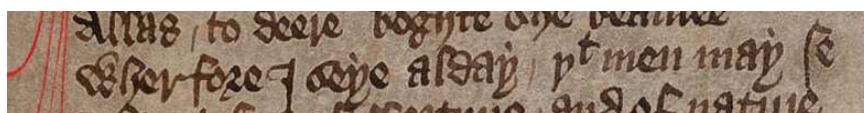 Allas, to deere boghte she beautee
Wherfore I seye alday / yᵗ men may se
and of nature